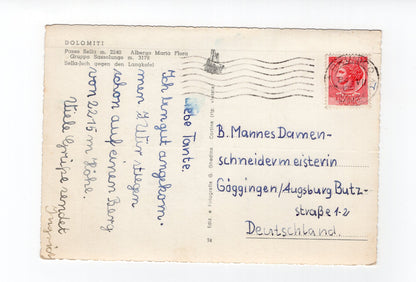 DOLOMITI
Passo Sella m. 2240 Albergo Maria Flora
Gruppo Sassolungo m. 3178
Sella-Joch gegen den Langkofel
Liebe Tante.
Ich bin gut angekom-
men. Wir stiegen
schon auf einen Berg
von 2215 m Höhe.
Viele Grüße sendet
B. Mannes Damen-
schneidermeisterin
Göggingen/Augsburg Butz-
straße 1-2
Deutschland.